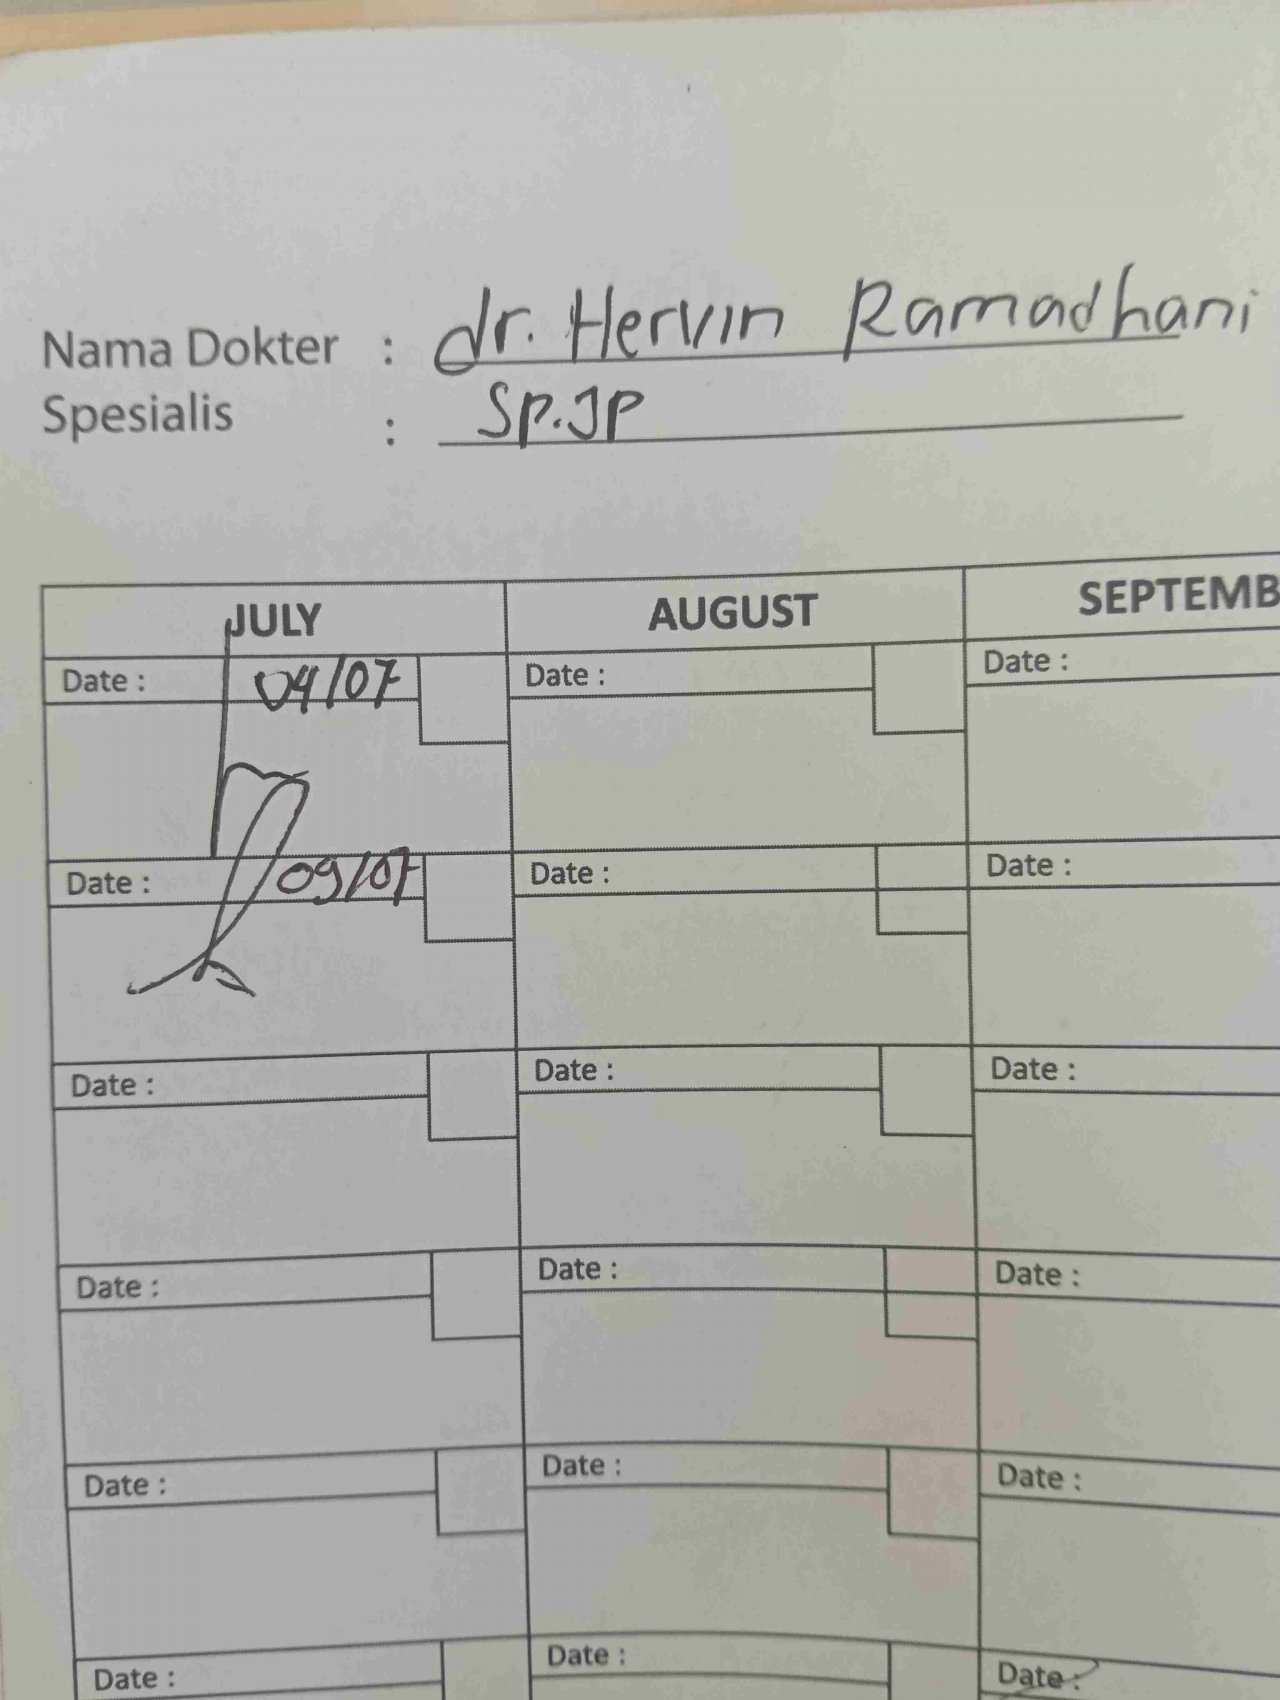 Nama Dokter : dr. Hervin Ramadhani
Spesialis : Sp.JP
JULY AUGUST SEPTEMB
Date : 04/07 Date : Date :
Date : 09/07 Date : Date :
Date : Date : Date :
Date : Date : Date :
Date : Date : Date :
Date : Date : Date :